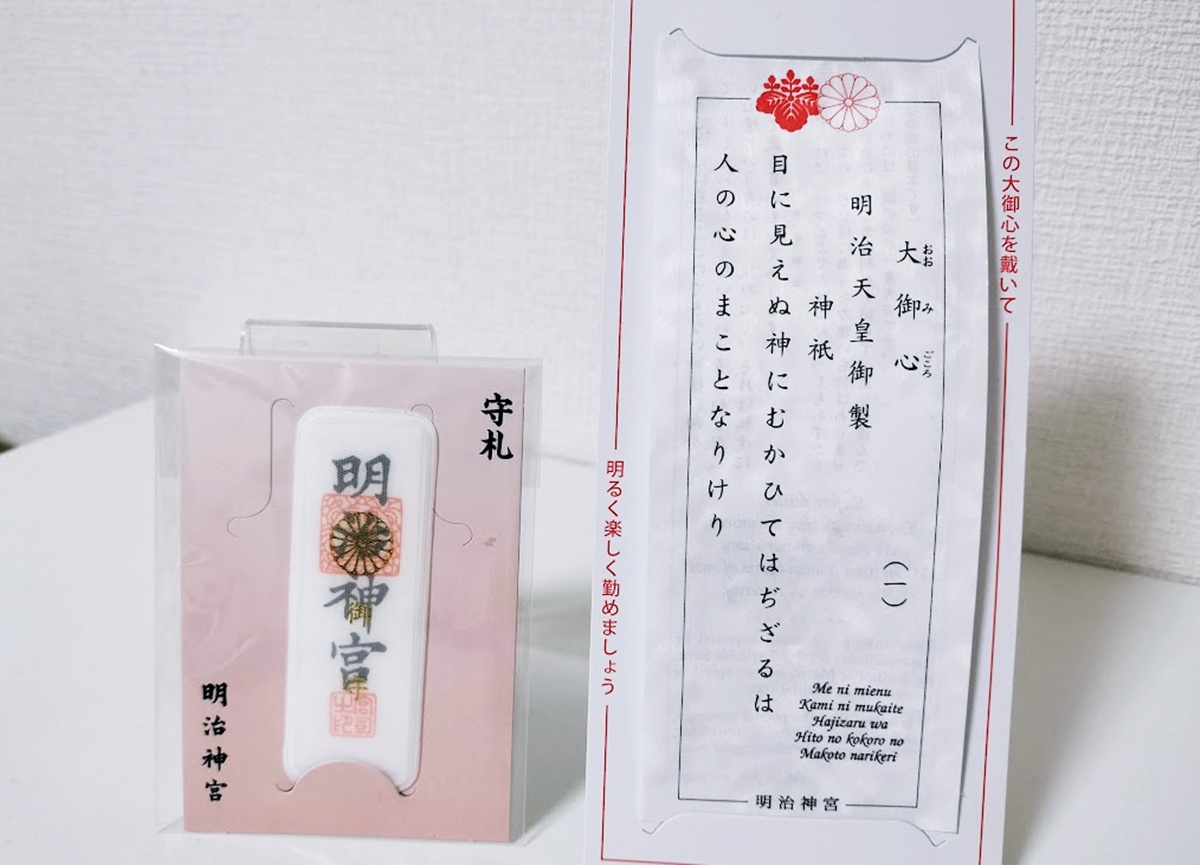 守札
明神宮
御守
明治神宮
この大御心を戴いて
明るく楽しく勤めましょう
大御心 (一)
おおみごころ
明治天皇御製
神祇
目に見えぬ神にむかひてはぢざるは
人の心のまことなりけり
Me ni mienu
Kami ni mukaite
Hajizaru wa
Hito no kokoro no
Makoto narikeri
明治神宮